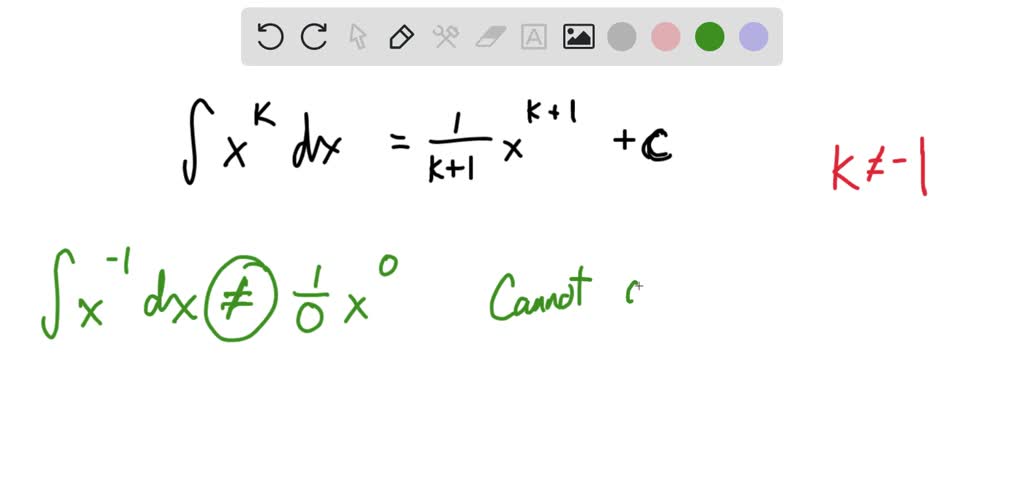 ∫ x^k dx = 1/(k+1) x^(k+1) + C
k ≠ -1
∫ x^-1 dx ≠ 1/0 x^0 Cannot